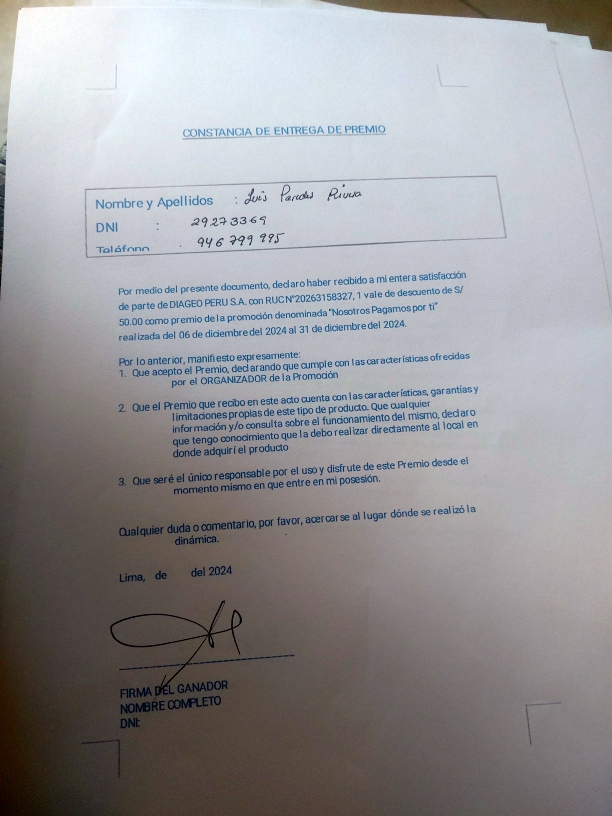 CONSTANCIA DE ENTREGA DE PREMIO
Nombre y Apellidos : Luis Paredes Rivera
DNI : 29273369
Teléfono : 946 799 995
Por medio del presente documento, declaro haber recibido a mi entera satisfacción
de parte de DIAGEO PERU S.A. con RUC N°20263158327, 1 vale de descuento de S/
50.00 como premio de la promoción denominada "Nosotros Pagamos por ti"
realizada del 06 de diciembre del 2024 al 31 de diciembre del 2024.
Por lo anterior, manifiesto expresamente:
1. Que acepto el Premio, declarando que cumple con las características ofrecidas
por el ORGANIZADOR de la Promoción
2. Que el Premio que recibo en este acto cuenta con las características, garantías y
limitaciones propias de este tipo de producto. Que cualquier
información y/o consulta sobre el funcionamiento del mismo, declaro
que tengo conocimiento que la debo realizar directamente al local en
donde adquirí el producto
3. Que seré el único responsable por el uso y disfrute de este Premio desde el
momento mismo en que entre en mi posesión.
Cualquier duda o comentario, por favor, acercarse al lugar dónde se realizó la
dinámica.
Lima, de del 2024
FIRMA DEL GANADOR
NOMBRE COMPLETO
DNI: